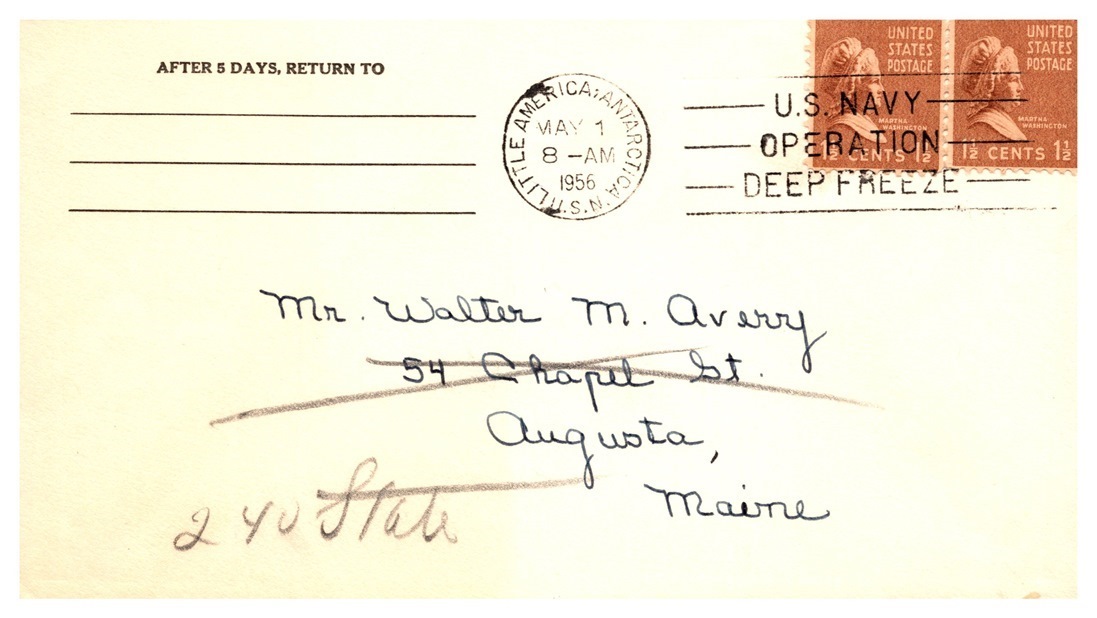 AFTER 5 DAYS, RETURN TO
LITTLE AMERICA, ANTARCTICA. U.S.N.
MAY 1
8 - AM
1956
U.S. NAVY
OPERATION
DEEP FREEZE
UNITED
STATES
POSTAGE
MARTHA
WASHINGTON
1½ CENTS 1½
UNITED
STATES
POSTAGE
MARTHA
WASHINGTON
1½ CENTS 1½
Mr. Walter M. Averry
54 Chapel St.
Augusta,
Maine
240 State